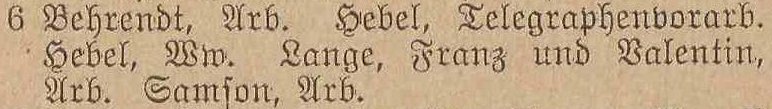 6 Behrendt, Arb. Hebel, Telegraphenvorarb.
Hebel, Ww. Lange, Franz und Valentin,
Arb. Samſon, Arb.